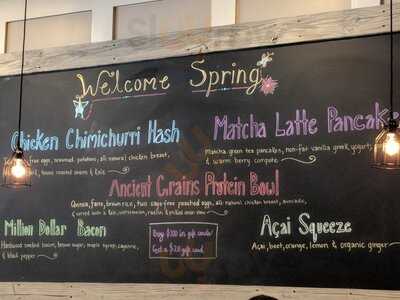 Welcome Spring
Chicken Chimichurri Hash
free eggs, seasoned potatoes, all natural chicken breast,
house roasted onions & Kale
Matcha Latte Pancak
Matcha green tea pancakes, non-fat vanilla greek yogurt,
& warm berry compote
Ancient Grains Protein Bowl
Quinoa, farro, brown rice, two cage-free poached eggs, all natural chicken breast, avocado,
served with a kale,
Million Dollar Bacon
Hardwood smoked bacon, brown sugar, maple syrup, cayenne,
& black pepper
Buy $100 in gift cards!
Get a $20 gift card
Açai Squeeze
Açai, beet, orange, lemon & organic ginger